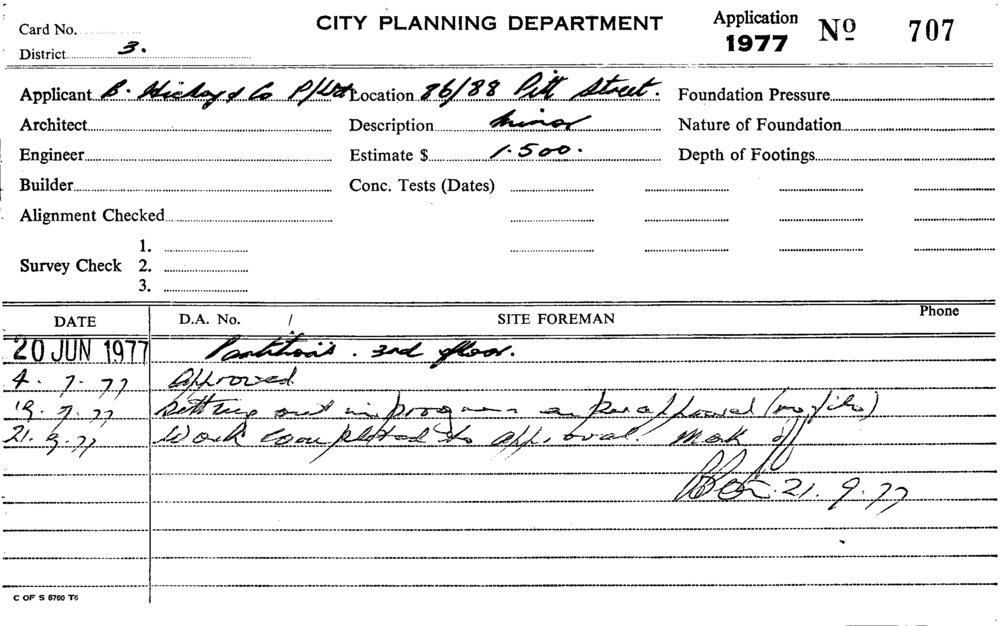 Card No.
CITY PLANNING DEPARTMENT
Application 1977 Nº 707
District 3.
Applicant B. Hickey & Co P/Ltd Location 86/88 Pitt Street. Foundation Pressure
Architect Description Minor Nature of Foundation
Engineer Estimate $ 1.500. Depth of Footings
Builder Conc. Tests (Dates)
Alignment Checked
Survey Check 1.
2.
3.
DATE D.A. No. / SITE FOREMAN Phone
20 JUN 1977 Partitions. 3rd floor.
4. 7. 77 Approved
19. 7. 77 Setting out in progress as per approval
21. 9. 77 Work completed to approval. Mark off
21. 9. 77
C OF S 6760 T6